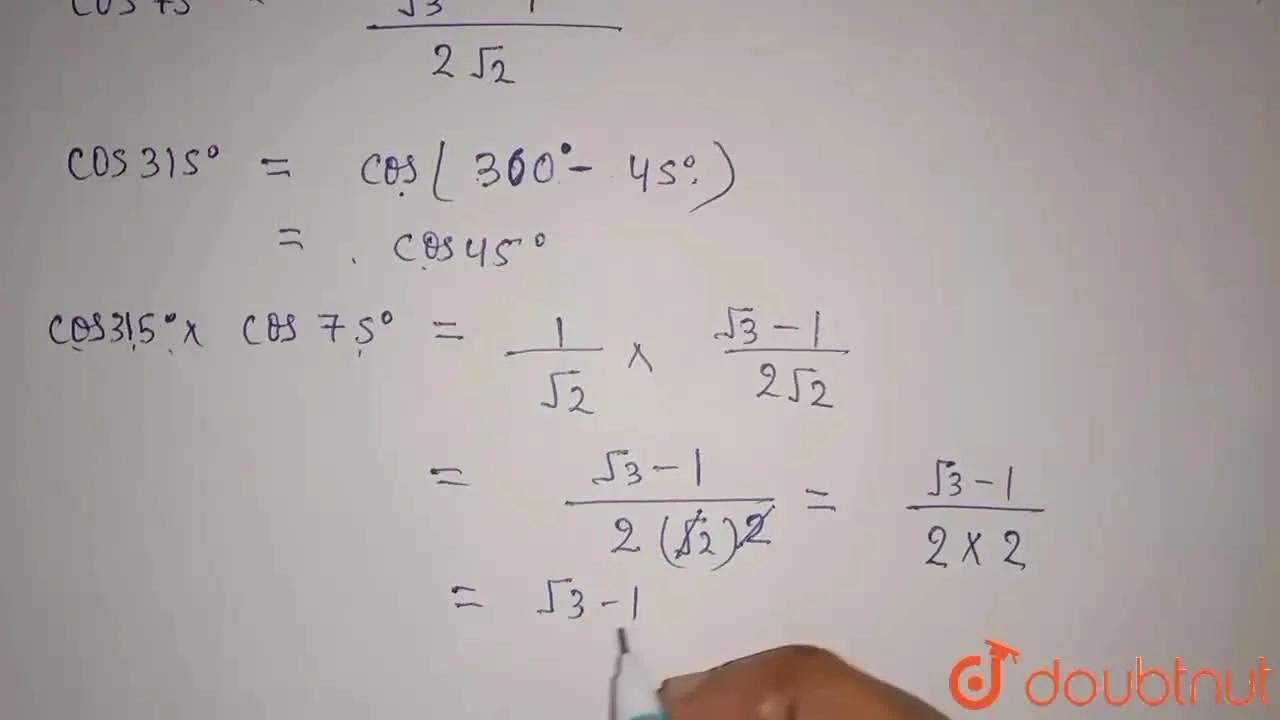 cos 75
√3 - 1
2√2
cos 315° = cos( 360° - 45° )
= cos 45°
cos 315° × cos 75° = 1/√2 × √3 - 1/2√2
= √3 - 1/2(√2)2 = √3 - 1/2 × 2
= √3 - 1
doubtnut